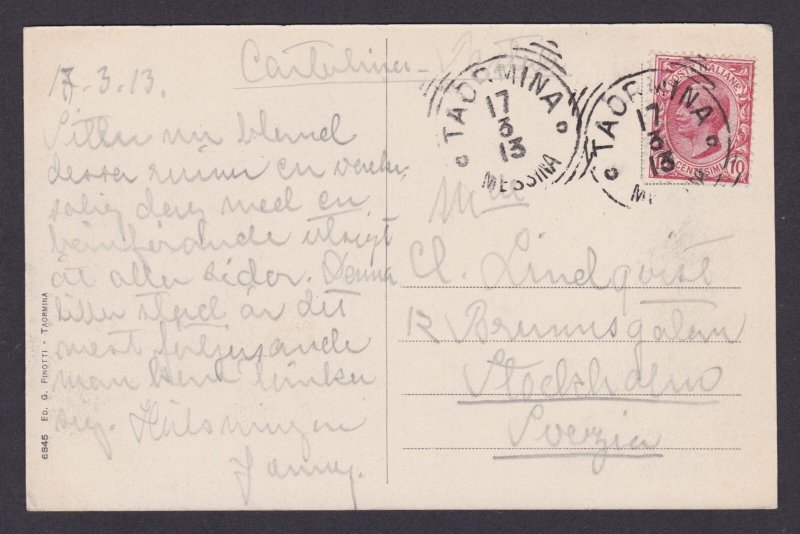 17-3.13.
Sitter nu bland
dessa ruiner en
solig dag med en
hänförande utsigt
åt alla sidor. Denna
lilla stad är det
mest förtjusande
man kan tänka
sig. Hälsningar
Fanny.
Cartolina
TAORMINA
17
3
13
MESSINA
TAORMINA
17
3
13
POSTE ITALIANE
CENTESIMI 10
Mlle
Cl. Lindqvist
12 Brunnsgatan
Stockholm
Svezia
6845 ED. G. PINOTTI - TAORMINA